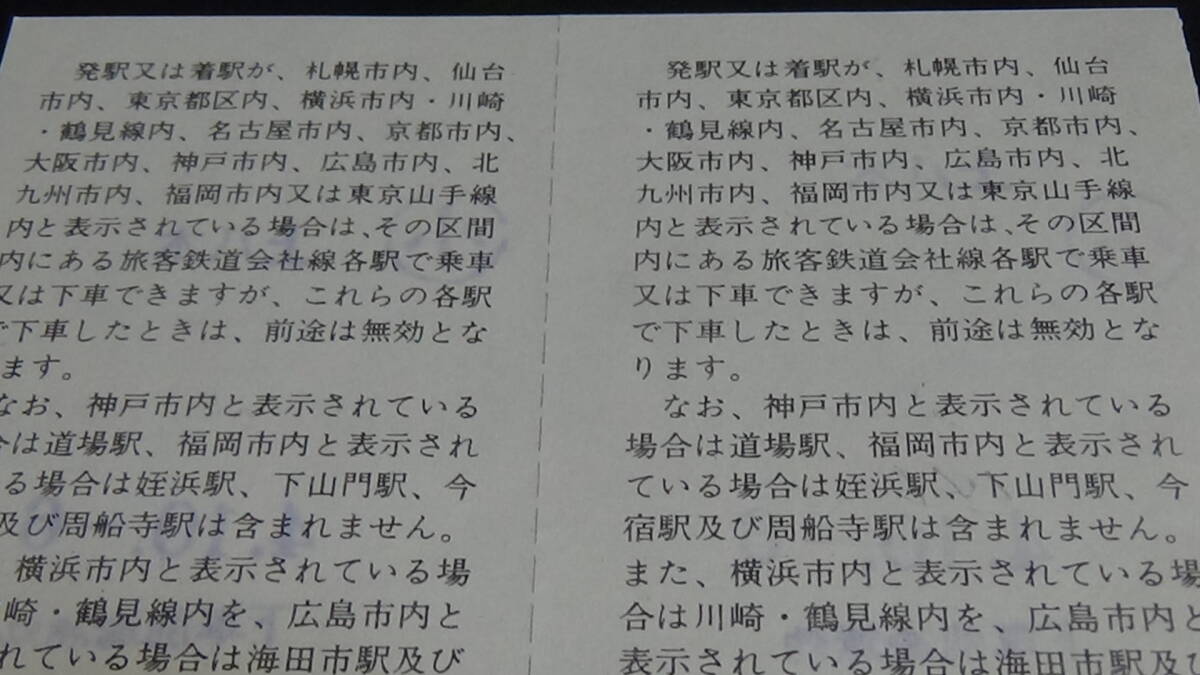 発駅又は着駅が、札幌市内、仙台
市内、東京都区内、横浜市内・川崎
・鶴見線内、名古屋市内、京都市内、
大阪市内、神戸市内、広島市内、北
九州市内、福岡市内又は東京山手線
内と表示されている場合は、その区間
内にある旅客鉄道会社線各駅で乗車
又は下車できますが、これらの各駅
で下車したときは、前途は無効とな
ます。
なお、神戸市内と表示されている
合は道場駅、福岡市内と表示され
る場合は姪浜駅、下山門駅、今
及び周船寺駅は含まれません。
横浜市内と表示されている場
崎・鶴見線内を、広島市内と
れている場合は海田市駅及び
発駅又は着駅が、札幌市内、仙台
市内、東京都区内、横浜市内・川崎
・鶴見線内、名古屋市内、京都市内、
大阪市内、神戸市内、広島市内、北
九州市内、福岡市内又は東京山手線
内と表示されている場合は、その区間
内にある旅客鉄道会社線各駅で乗車
又は下車できますが、これらの各駅
で下車したときは、前途は無効とな
ります。
なお、神戸市内と表示されている
場合は道場駅、福岡市内と表示され
ている場合は姪浜駅、下山門駅、今
宿駅及び周船寺駅は含まれません。
また、横浜市内と表示されている場
合は川崎・鶴見線内を、広島市内と
表示されている場合は海田市駅及び